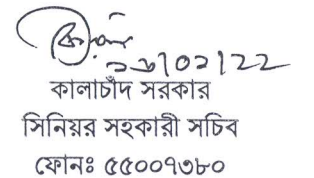 ২৬/০১/২২
কালাচাঁদ সরকার
সিনিয়র সহকারী সচিব
ফোনঃ ৫৫০০৭৩৮০